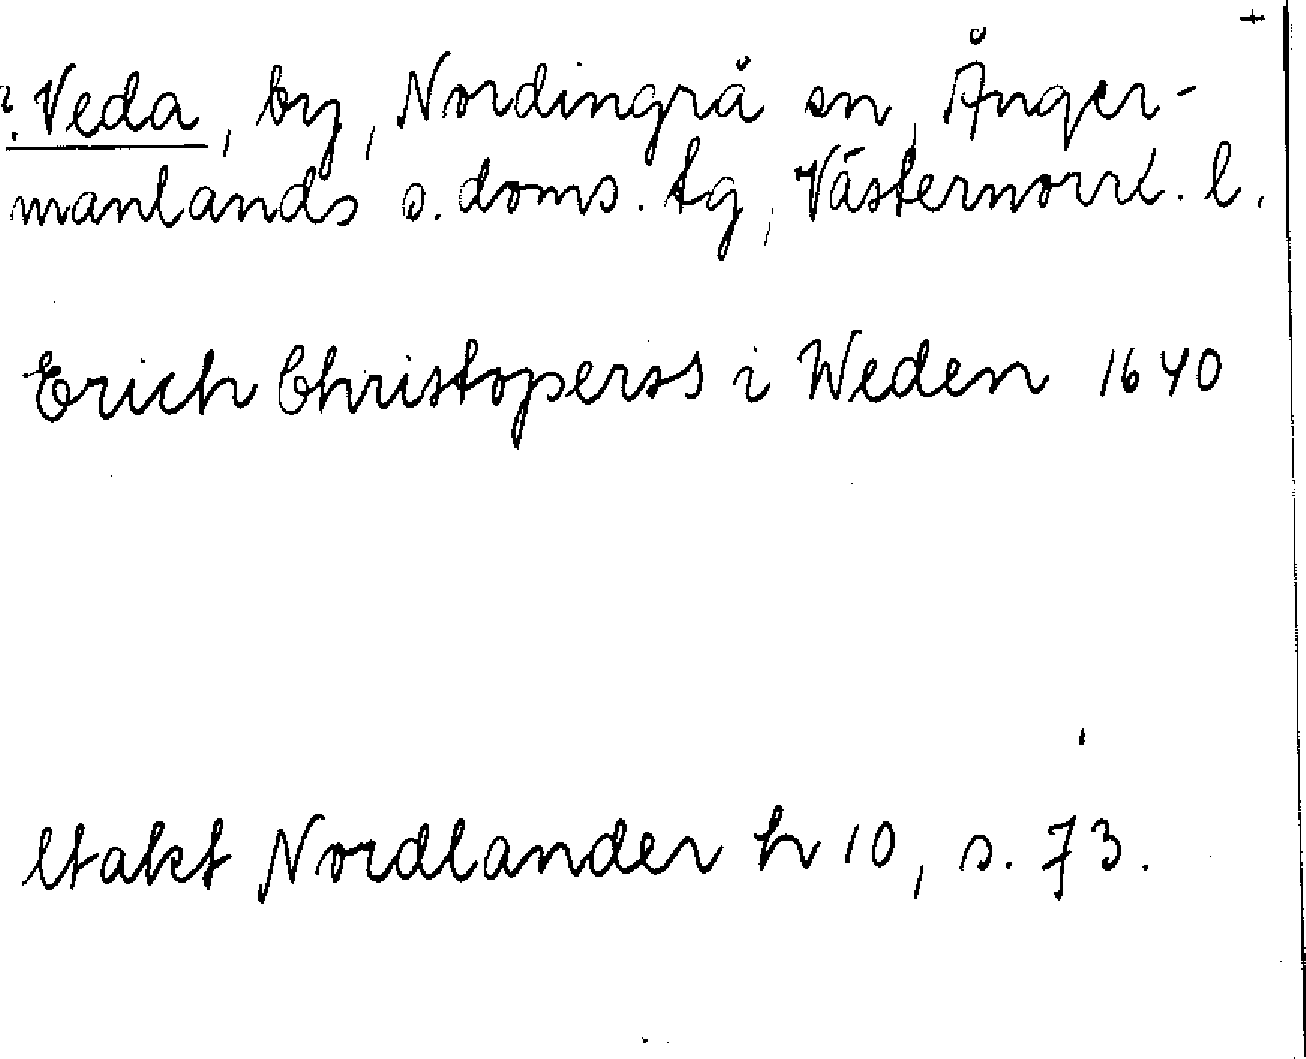 ?. Veda, by, Nordingrå sn, Ånger-
manlands s. doms. tg, Västernorrl. l.
Erich Christoperss i Weden 1640
Utakt Nordlander h 10, s. 73.